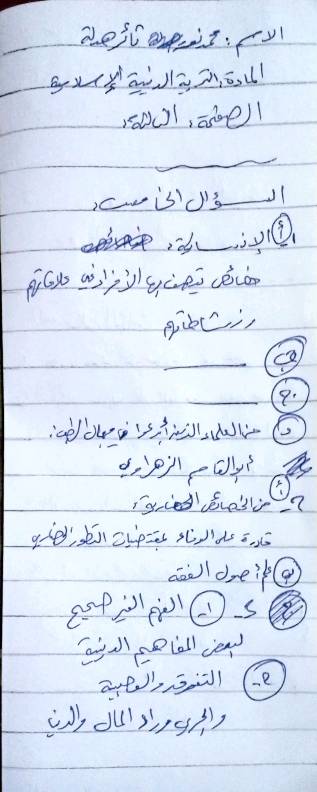 الاسم: محمد نور ثائر هدلة
المادة: التربية الدينية الإسلامية
الصفحة: الثالثة
السؤال الخامس:
أ الإنسانية:
خصائص يتصف بها الأفراد في علاقاتهم
ونشاطاتهم
ب ——
ج ——
د من العلماء الذين أبدعوا في مجال الطب:
أبو القاسم الزهراوي
2- أ من الخصائص الحضارية:
قادرة على الوفاء بمقتضيات التطور الحضاري
ب علم أصول الفقه
1- الفهم الغير صحيح
لبعض المفاهيم الدينية
2- التفرقة والعصبية
والجري وراء المال والدنيا